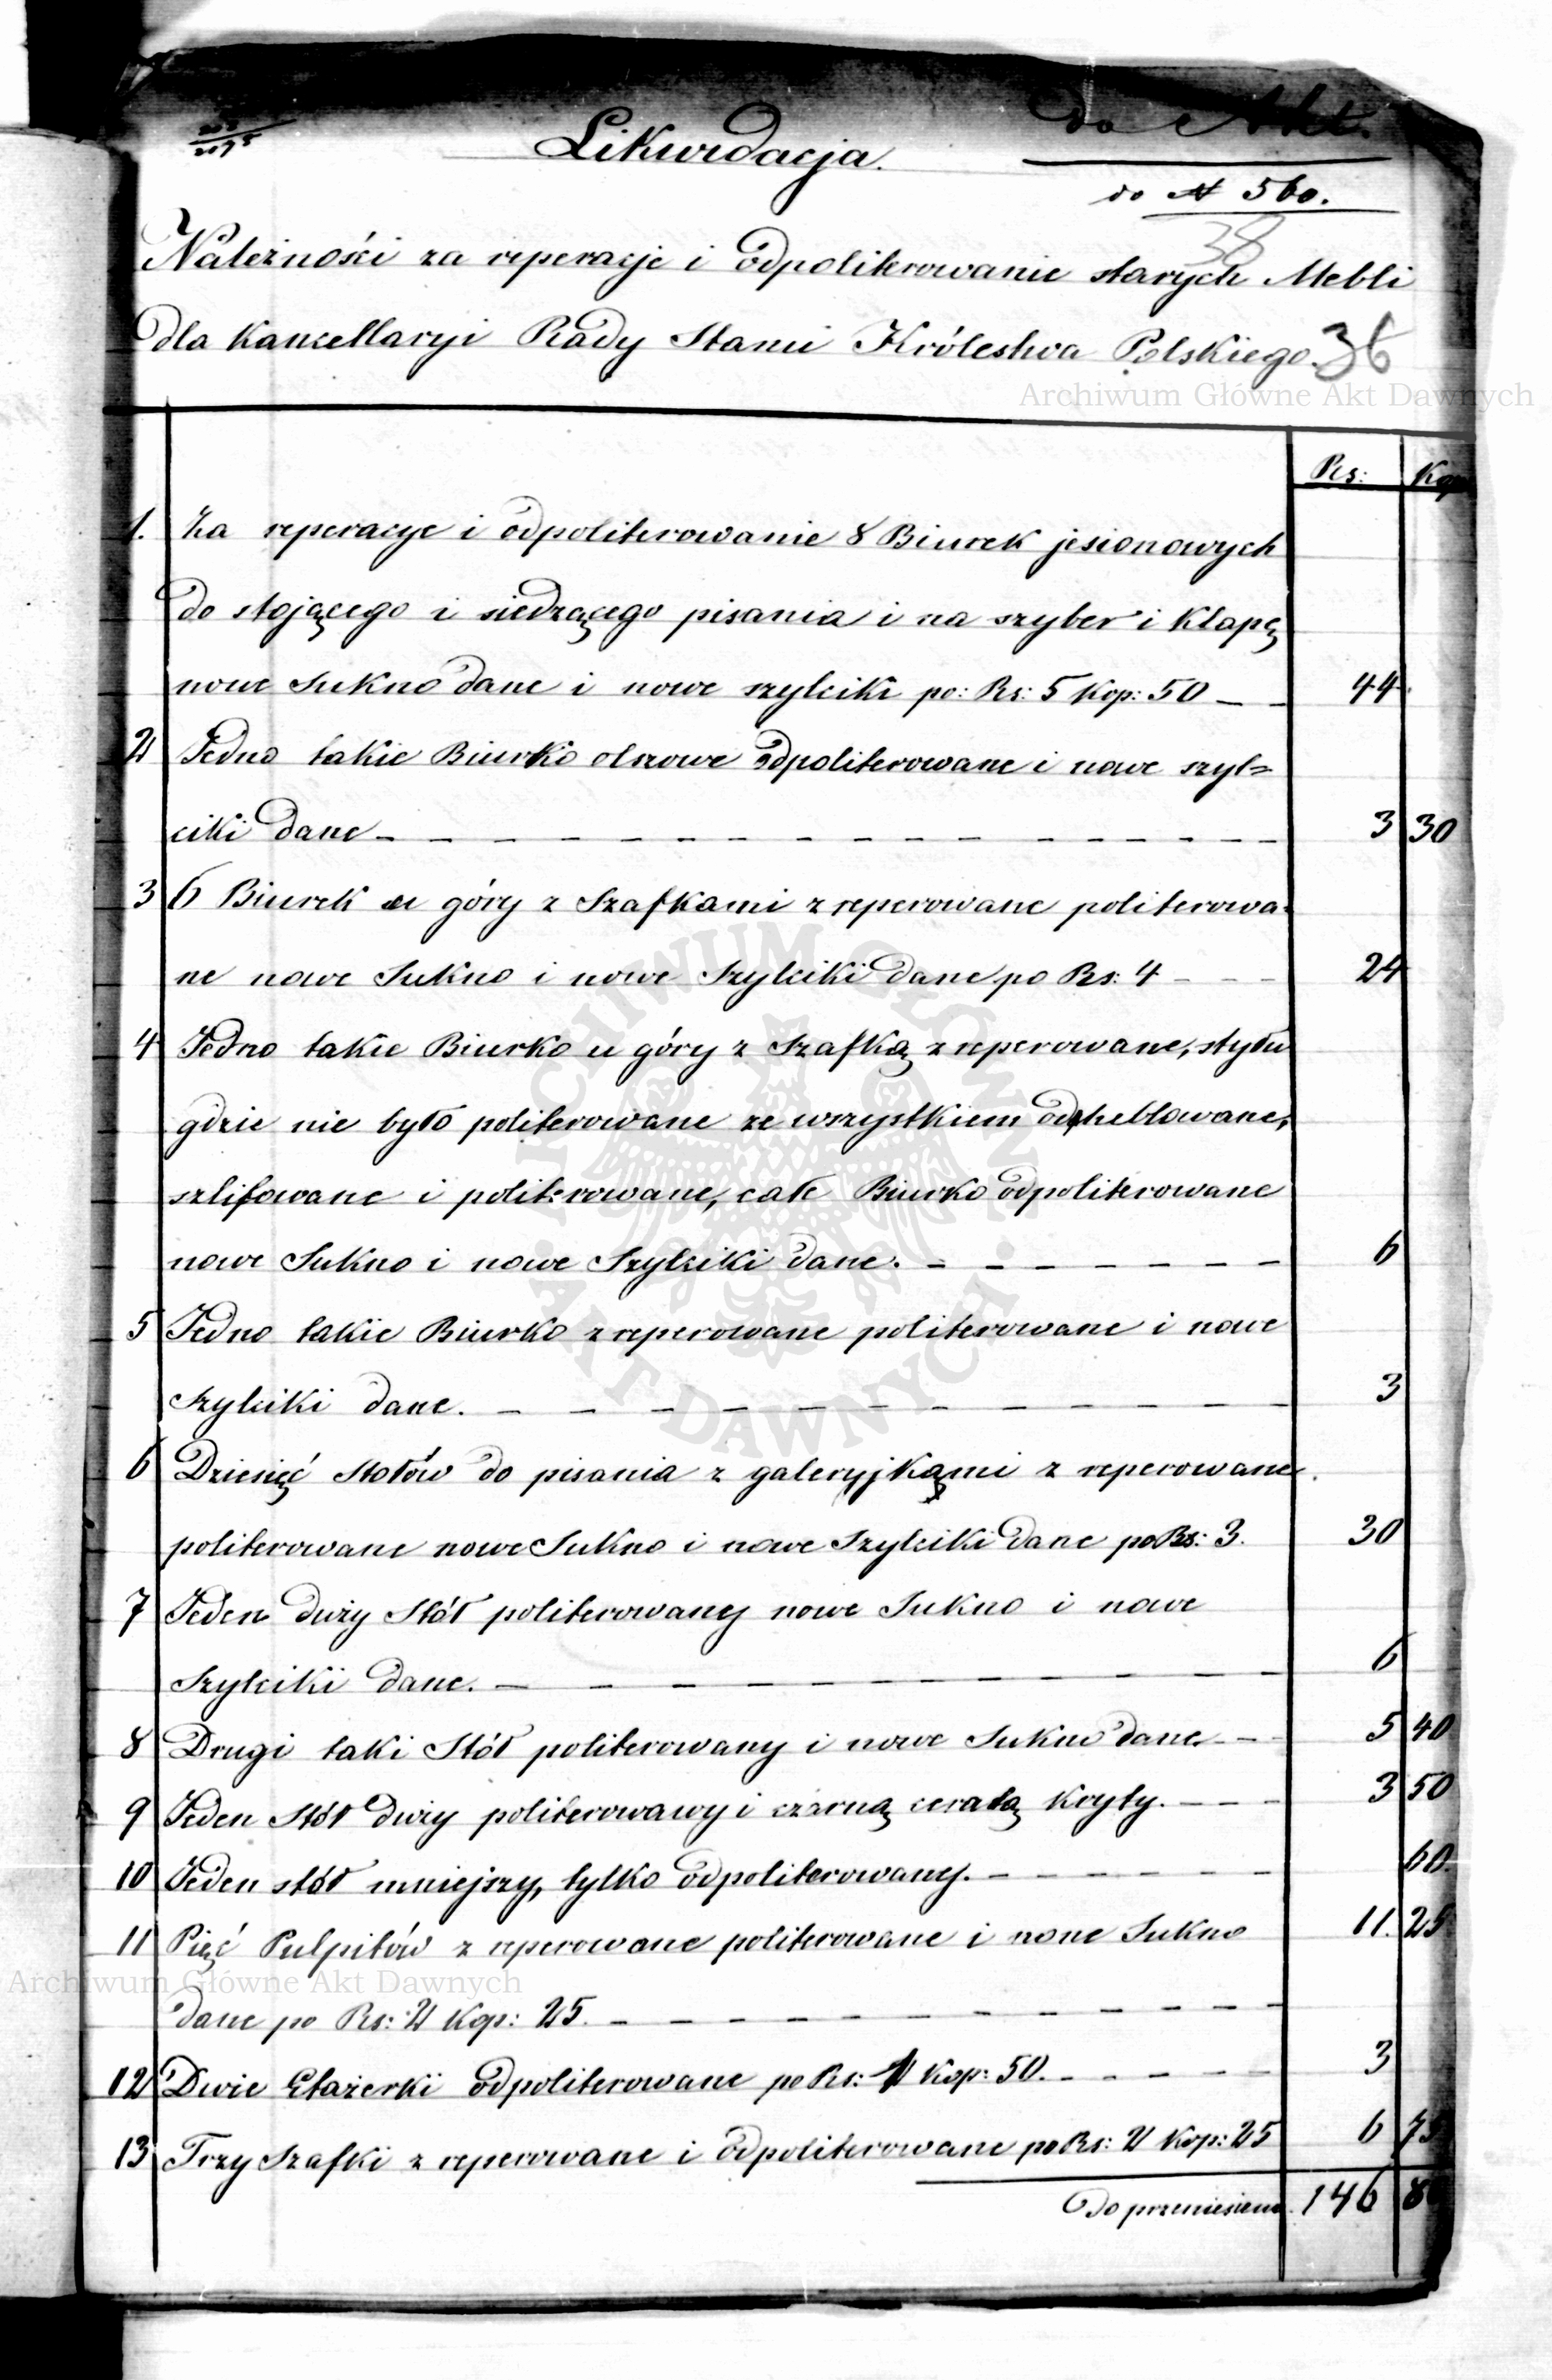 do Akt.
Likwidacja.
do № 560.
38
Należności za reperacje i odpoliterowanie starych Mebli
dla Kancellaryi Rady Stanu Królestwa Polskiego.
36
Archiwum Główne Akt Dawnych
Rs: Kop
1. Za reperacye i odpoliterowanie 8 Biurek jesionowych
do stojącego i siedzącego pisania i na szyber i Klapę
nowe Sukno dane i nowe szylciki po: Rs: 5 Kop: 50 — — 44.
2 Jedno takie Biurko olszowe odpoliterowane i nowe szyl=
ciki dane — — — — — — — — — — — — — — 3 30
3 6 Biurek u góry z Szafkami zreperowane politerowa=
ne nowe Sukno i nowe Szylciki dane po Rs: 4 — — — 24
4 Jedno takie Biurko u góry z Szafką zreperowane, stylu
gdzie nie było politerowane ze wszystkiem odheblowane,
szlifowane i politerowane, całe Biurko odpoliterowane
nowe Sukno i nowe Szylciki dane. — — — — — — — 6
5 Jedno takie Biurko zreperowane politerowane i nowe
Szylciki dane. — — — — — — — — — — — — 3
6 Dziesięć Stołów do pisania z galeryjkami z reperowane.
politerowane nowe Sukno i nowe Szylciki dane po Rs: 3. 30
7 Jeden duży Stół politerowany nowe Sukno i nowe
Szylciki dane. — — — — — — — — — — — 6
8 Drugi taki Stół politerowany i nowe Sukno dane — — 5 40
9 Jeden Stół duży politerowawy i czarną ceratą Kryty. — — — 3 50
10 Jeden stół mniejszy, tylko odpoliterowany. — — — — — 60.
11 Pięć Pulpitów z reperowane politerowane i none Sukno 11. 25
Archiwum Główne Akt Dawnych
dane po Rs: 2 Kop: 25. — — — — — — — — — —
12 Dwie Etażerki odpoliterowane po Rs: 1 Kop: 50. — — — — — 3
13 Trzy Szafki z reperowane i odpoliterowane po Rs: 2 Kop: 25 6 75
Do przeniesienia. 146 80
ARCHIWUM GŁÓWNE · AKT DAWNYCH ·